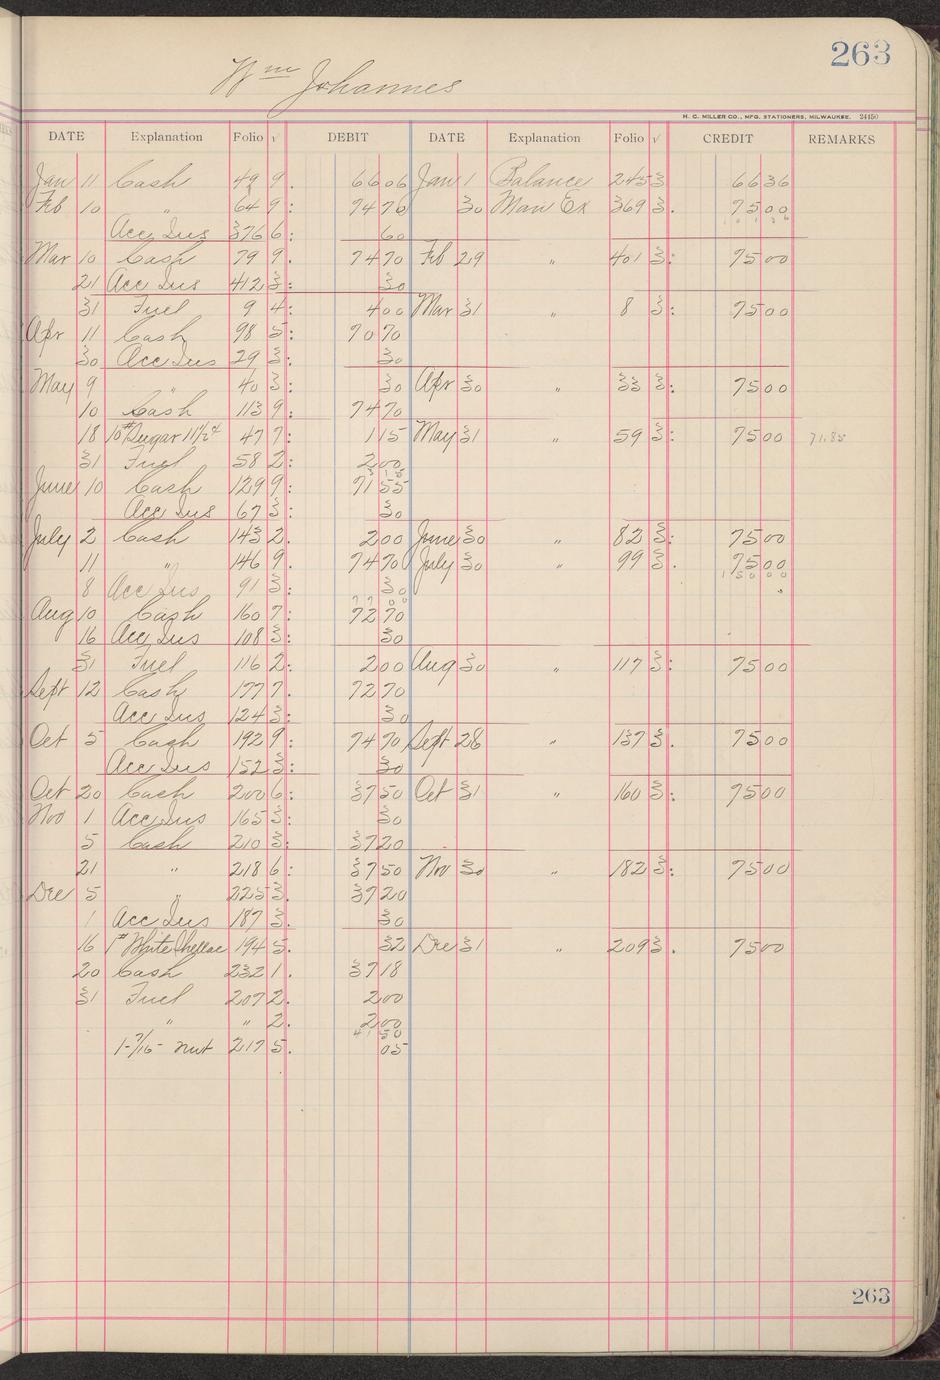 263
Wm Johannes
H. C. MILLER CO., MFG. STATIONERS, MILWAUKEE. 24150
DATE Explanation Folio √ DEBIT DATE Explanation Folio √ CREDIT REMARKS
Jan 11 Cash 49 9. 66 06 Jan 1 Balance 245 3 66 36
Feb 10 " 64 9: 74 70 30 Man Ex 369 3. 75 00
Acc Ins 376 6: 60
Mar 10 Cash 79 9. 74 70 Feb 29 " 401 3: 75 00
21 Acc Ins 412 3: 30
31 Fuel 9 4: 4 00 Mar 31 " 8 3: 75 00
Apr 11 Cash 98 5: 70 70
30 Acc Ins 29 3: 30
May 9 " 40 3: 30 Apr 30 " 33 3: 75 00
10 Cash 113 9: 74 70
18 10# Sugar 11½¢ 47 7: 1 15 May 31 " 59 3: 75 00 71.85
31 Fuel 58 2: 2 00
3 15
June 10 Cash 129 9: 71 55
Acc Ins 67 3: 30
July 2 Cash 143 2. 2 00 June 30 " 82 3: 75 00
11 " 146 9. 74 70 July 30 " 99 3. 75 00
150 00
8 Acc Ins 91 3: 30
77 00
Aug 10 Cash 160 7: 72 70
16 Acc Ins 108 3: 30
31 Fuel 116 2: 2 00 Aug 30 " 117 3: 75 00
Sept 12 Cash 177 7. 72 70
Acc Ins 124 3: 30
Oct 5 Cash 192 9: 74 70 Sept 28 " 137 3. 75 00
Acc Ins 152 3: 30
Oct 20 Cash 200 6: 37 50 Oct 31 " 160 3: 75 00
Nov 1 Acc Ins 165 3: 30
5 Cash 210 3: 37 20
21 " 218 6: 37 50 Nov 30 " 182 3: 75 00
Dec 5 " 225 3. 37 20
1 Acc Ins 187 3. 30
16 1# White Shellac 194 5. 32 Dec 31 " 209 3. 75 00
20 Cash 232 1. 37 18
31 Fuel 207 2. 2 00
" " 2. 2 00
41 50
1-7/16- nut 217 5. 05
263